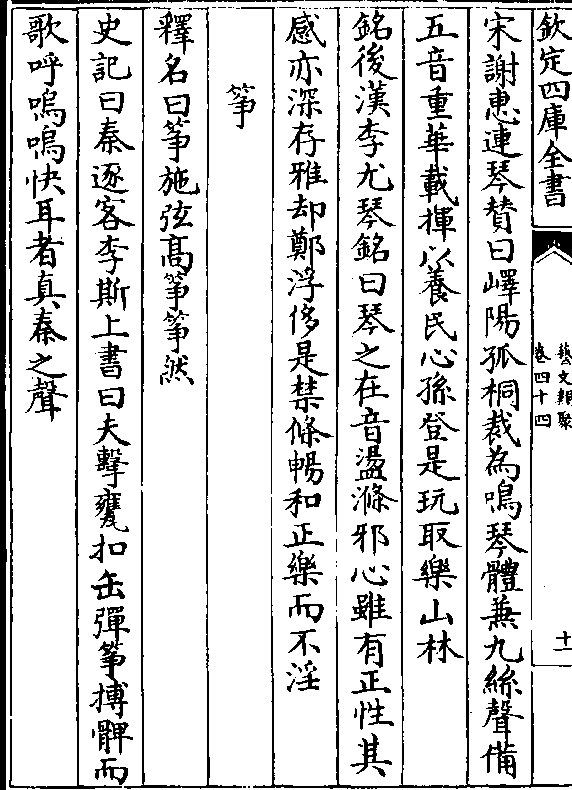 欽定四庫全書
藝文類聚
卷四十四
十一
宋謝惠連琴贊曰嶧陽孤桐裁為鳴琴體兼九絲聲備
五音重華載揮以養民心孫登是玩取樂山林
銘後漢李尤琴銘曰琴之在音盪滌邪心雖有正性其
感亦深存雅却鄭浮侈是禁條暢和正樂而不淫
筝
釋名曰筝施弦髙筝筝然
史記曰秦逐客李斯上書曰夫擊甕扣缶彈筝搏髀而
歌呼嗚嗚快耳者真秦之聲